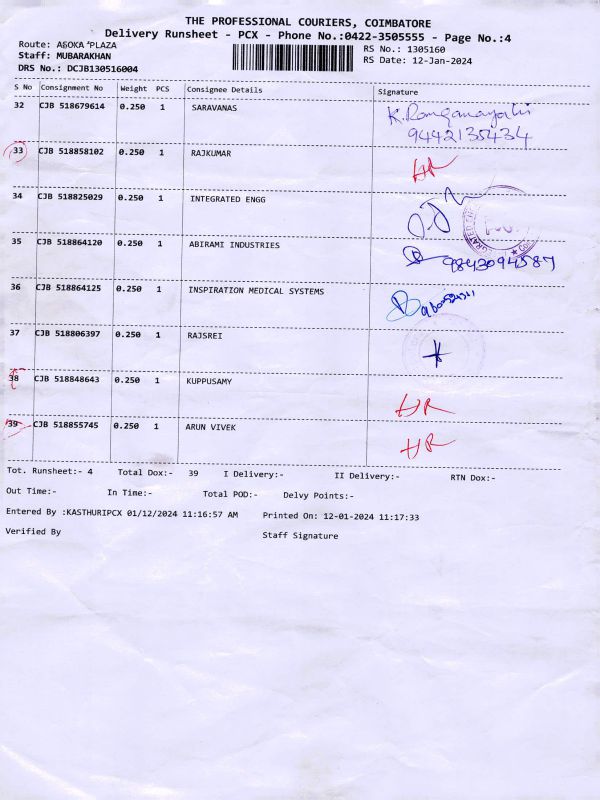 THE PROFESSIONAL COURIERS, COIMBATORE
Delivery Runsheet - PCX - Phone No.:0422-3505555 - Page No.:4
Route: ASOKA PLAZA
RS No.: 1305160
Staff: MUBARAKHAN
RS Date: 12-Jan-2024
DRS No.: DCJB130516004
S No Consignment No Weight PCS Consignee Details Signature
32 CJB 518679614 0.250 1 SARAVANAS
9442135434
33 CJB 518858102 0.250 1 RAJKUMAR HR
34 CJB 518825029 0.250 1 INTEGRATED ENGG
35 CJB 518864120 0.250 1 ABIRAMI INDUSTRIES 9843094587
36 CJB 518864125 0.250 1 INSPIRATION MEDICAL SYSTEMS
37 CJB 518806397 0.250 1 RAJSREI
38 CJB 518848643 0.250 1 KUPPUSAMY HR
39 CJB 518855745 0.250 1 ARUN VIVEK HR
Tot. Runsheet:- 4 Total Dox:- 39 I Delivery:- II Delivery:- RTN Dox:-
Out Time:- In Time:- Total POD:- Delvy Points:-
Entered By :KASTHURIPCX 01/12/2024 11:16:57 AM Printed On: 12-01-2024 11:17:33
Verified By Staff Signature